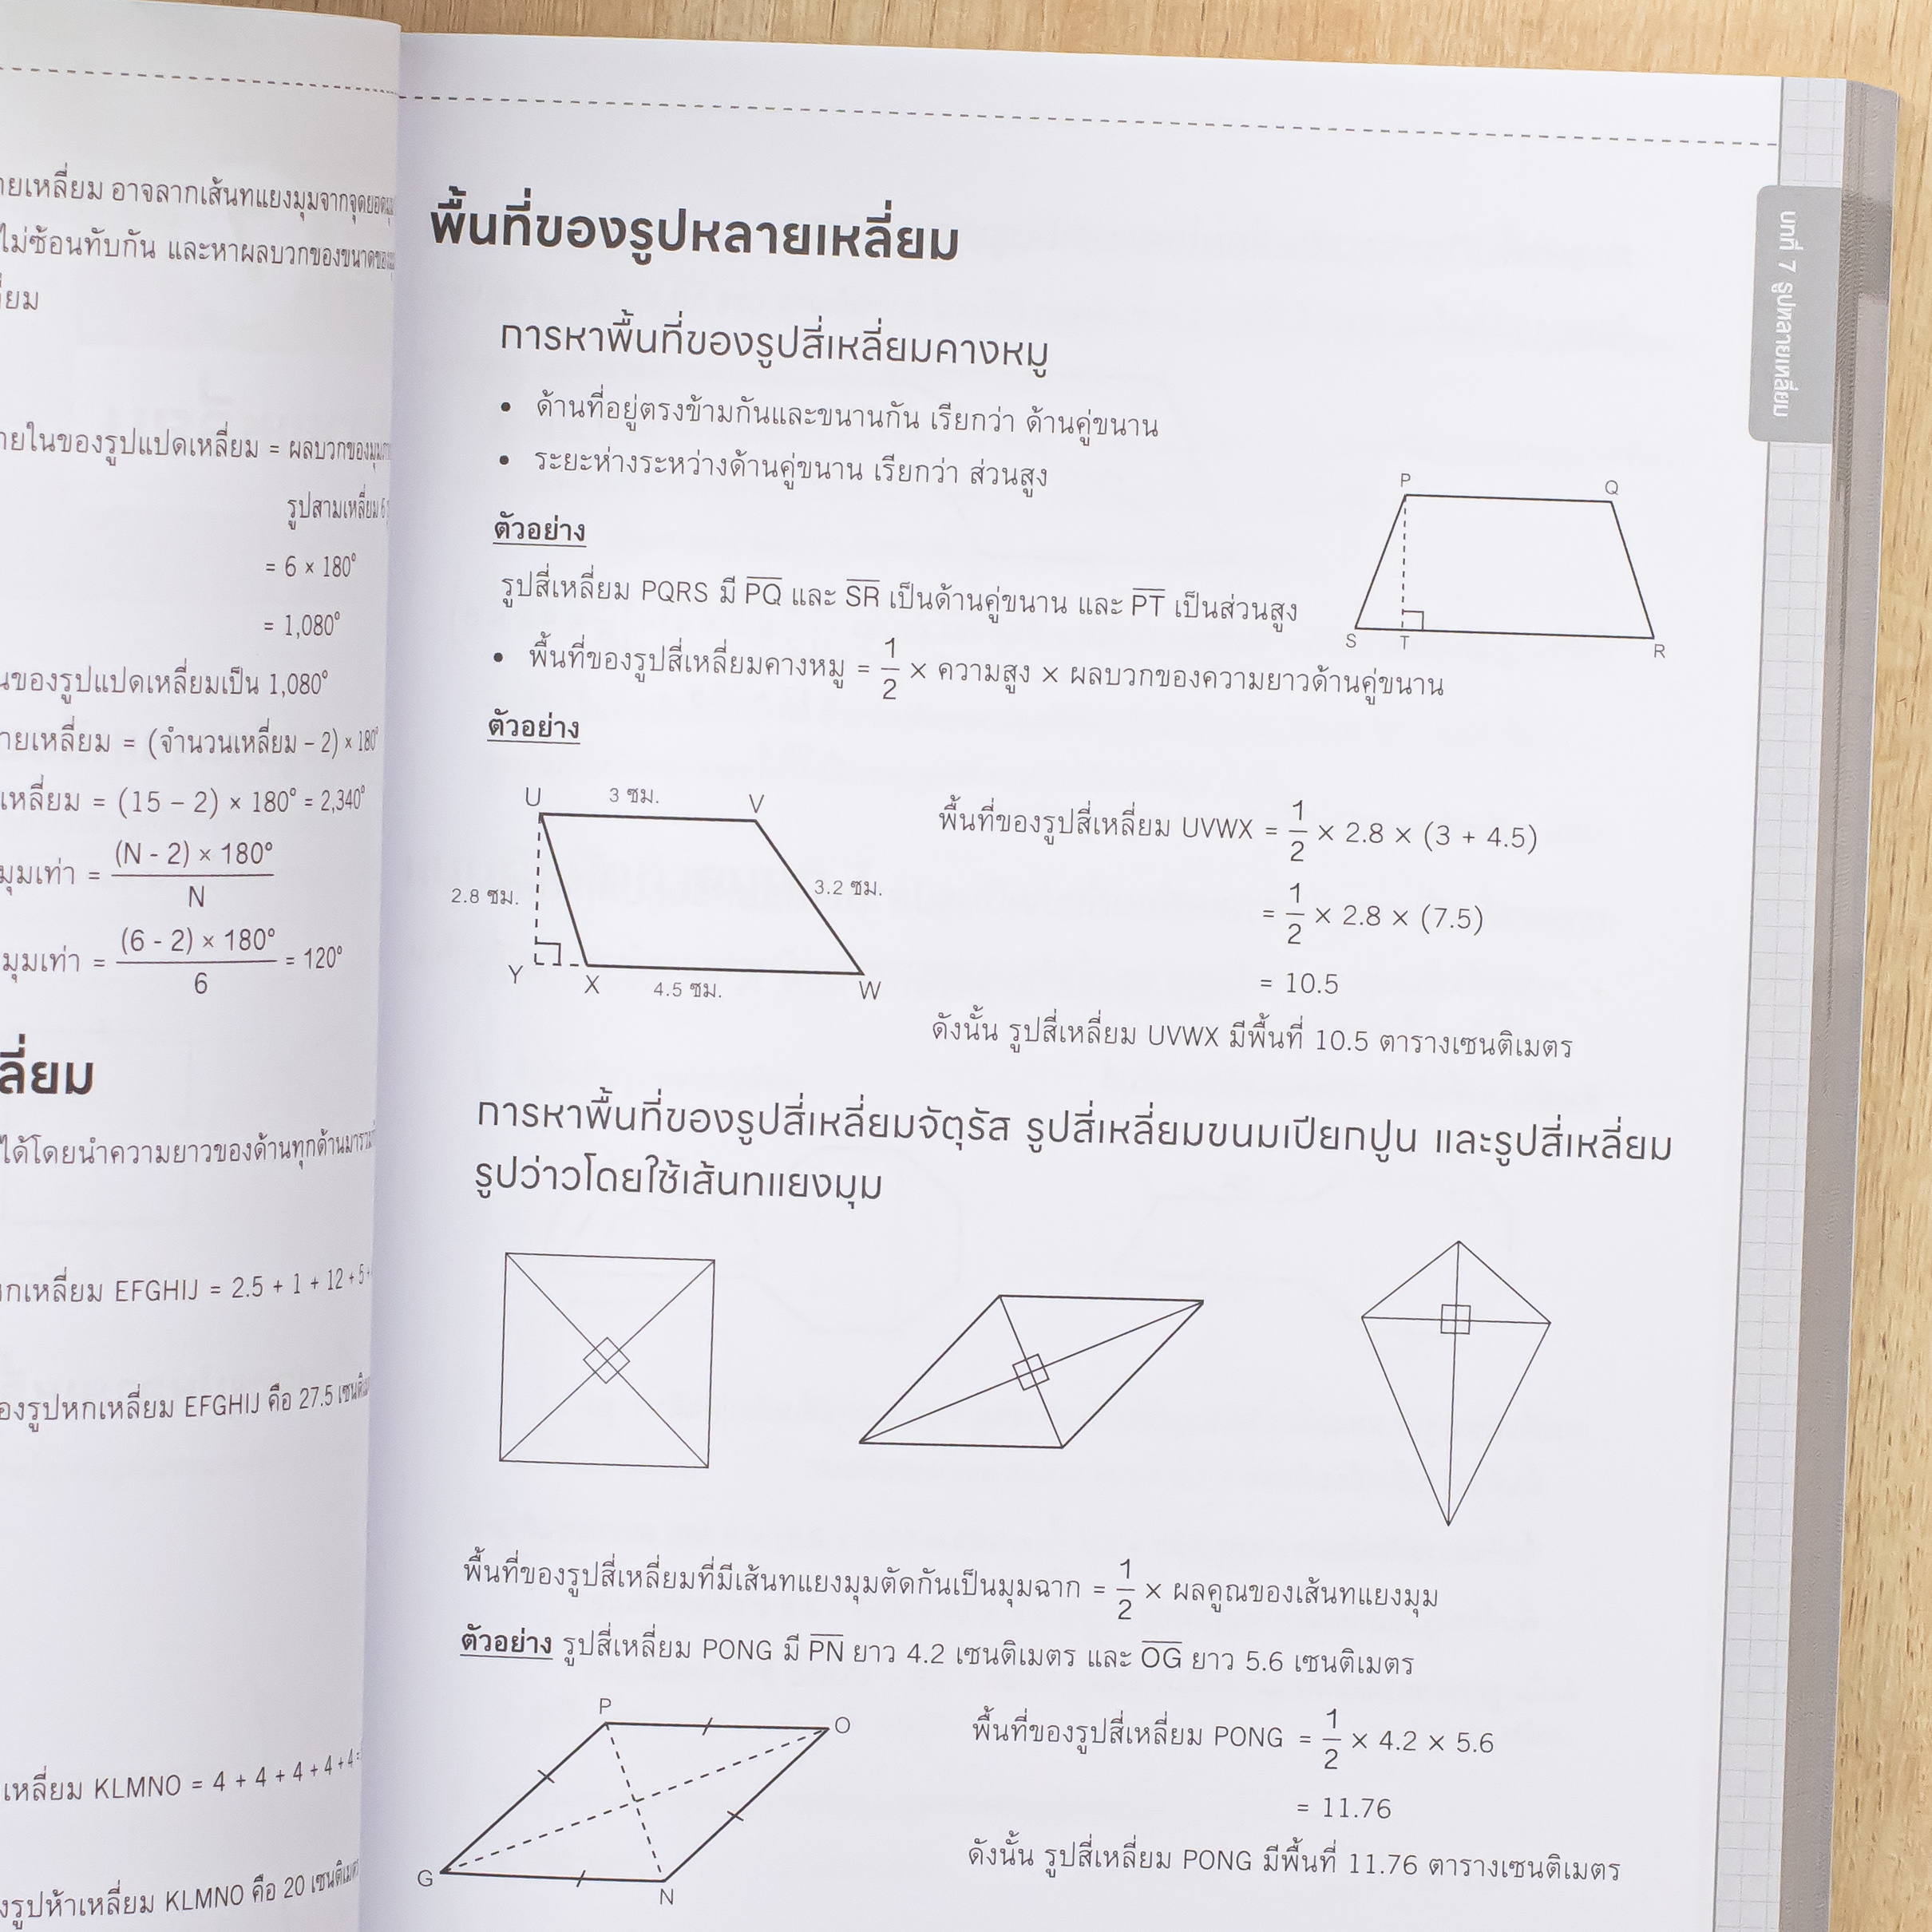 ายเหลี่ยม อาจลากเส้นทแยงมุมจากจุดยอดมุม
ไม่ซ้อนทับกัน และหาผลบวกของขนาดของมุม
ายในของรูปแปดเหลี่ยม = ผลบวกของมุม
รูปสามเหลี่ยม 6
= 6 × 180°
= 1,080°
นของรูปแปดเหลี่ยมเป็น 1,080°
ายเหลี่ยม = (จำนวนเหลี่ยม – 2) × 180°
เหลี่ยม = (15 – 2) × 180° = 2,340°
มุมเท่า = (N - 2) × 180° / N
มุมเท่า = (6 - 2) × 180° / 6 = 120°
ลี่ยม
ได้โดยนำความยาวของด้านทุกด้านมารวม
กเหลี่ยม EFGHIJ = 2.5 + 1 + 12 + 5 +
องรูปหกเหลี่ยม EFGHIJ คือ 27.5 เซนติเม
เหลี่ยม KLMNO = 4 + 4 + 4 + 4 + 4 =
งรูปห้าเหลี่ยม KLMNO คือ 20 เซนติเมตร
บทที่ 7 รูปหลายเหลี่ยม
พื้นที่ของรูปหลายเหลี่ยม
การหาพื้นที่ของรูปสี่เหลี่ยมคางหมู
• ด้านที่อยู่ตรงข้ามกันและขนานกัน เรียกว่า ด้านคู่ขนาน
• ระยะห่างระหว่างด้านคู่ขนาน เรียกว่า ส่วนสูง
ตัวอย่าง
P Q
S T R
รูปสี่เหลี่ยม PQRS มี P̅Q̅ และ S̅R̅ เป็นด้านคู่ขนาน และ P̅T̅ เป็นส่วนสูง
• พื้นที่ของรูปสี่เหลี่ยมคางหมู = 1/2 × ความสูง × ผลบวกของความยาวด้านคู่ขนาน
ตัวอย่าง
U 3 ซม. V
2.8 ซม. 3.2 ซม.
Y X 4.5 ซม. W
พื้นที่ของรูปสี่เหลี่ยม UVWX = 1/2 × 2.8 × (3 + 4.5)
= 1/2 × 2.8 × (7.5)
= 10.5
ดังนั้น รูปสี่เหลี่ยม UVWX มีพื้นที่ 10.5 ตารางเซนติเมตร
การหาพื้นที่ของรูปสี่เหลี่ยมจัตุรัส รูปสี่เหลี่ยมขนมเปียกปูน และรูปสี่เหลี่ยม
รูปว่าวโดยใช้เส้นทแยงมุม
พื้นที่ของรูปสี่เหลี่ยมที่มีเส้นทแยงมุมตัดกันเป็นมุมฉาก = 1/2 × ผลคูณของเส้นทแยงมุม
ตัวอย่าง รูปสี่เหลี่ยม PONG มี P̅N̅ ยาว 4.2 เซนติเมตร และ O̅G̅ ยาว 5.6 เซนติเมตร
P O
G N
พื้นที่ของรูปสี่เหลี่ยม PONG = 1/2 × 4.2 × 5.6
= 11.76
ดังนั้น รูปสี่เหลี่ยม PONG มีพื้นที่ 11.76 ตารางเซนติเมตร